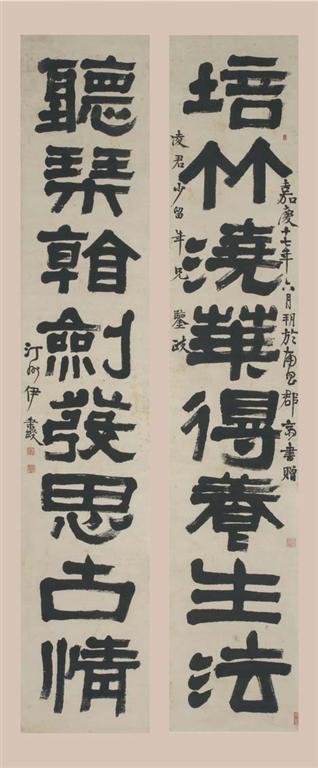 培竹澆華得養生法
嘉慶十七年六月 於 郡 書贈
凌君少留年兄鑒政
聽琴看劍發思古情
汀州伊秉綬